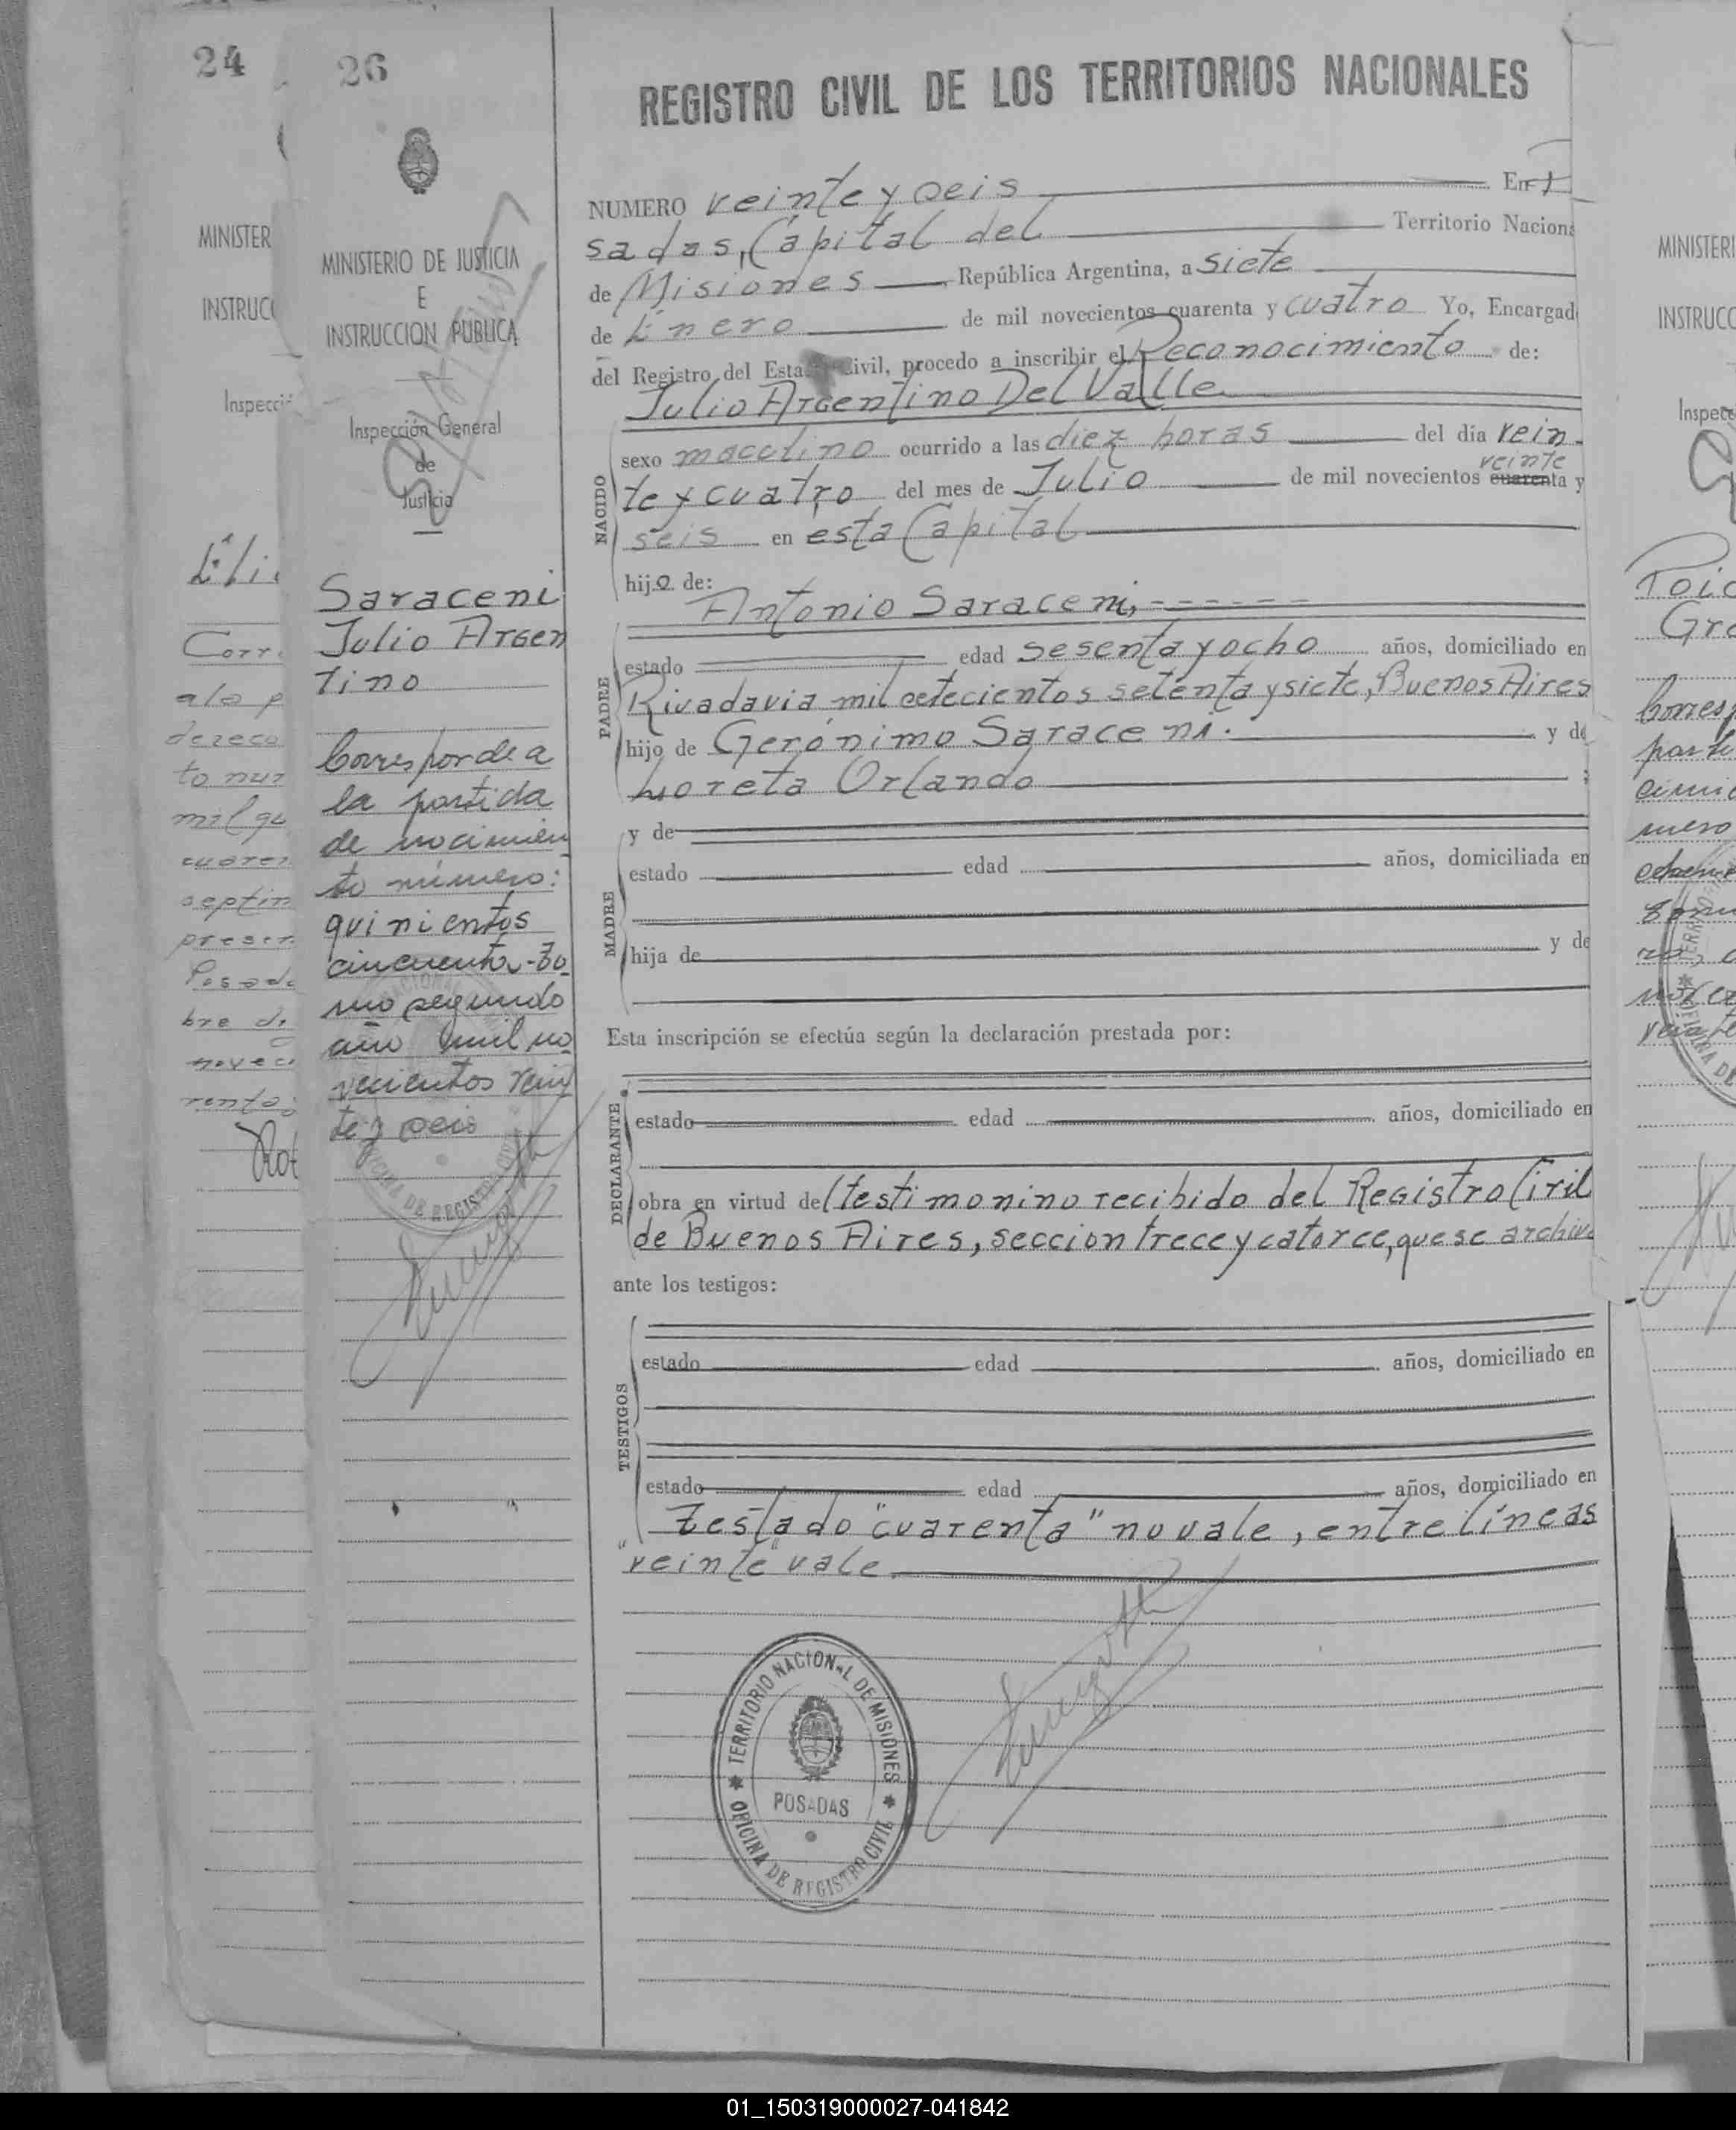 24
26
REGISTRO CIVIL DE LOS TERRITORIOS NACIONALES
MINISTER
INSTRUC
Inspecci
MINISTERIO DE JUSTICIA
E
INSTRUCCION PUBLICA
Inspección General
de
Justicia
Saraceni
Julio Argen
tino
Corresponde a
la partida
de nacimien
to número:
quinientos
cincuenta-To
mo segundo
año mil no
vecientos vein
te y seis
Corr
a la p
de reco
to nu
mil qu
cuaren
septim
presen
Posada
bre de
novec
renta
NUMERO veinte y seis En P
sadas, Capital del Territorio Naciona
de Misiones República Argentina, a siete
de Enero de mil novecientos cuarenta y cuatro Yo, Encargad
del Registro del Esta Civil, procedo a inscribir el Reconocimiento de:
Julio Argentino Del Valle
NACIDO
sexo masculino ocurrido a las diez horas del día vein-
veinte
te y cuatro del mes de Julio de mil novecientos cuarenta y
seis en esta Capital
hijo de:
Antonio Saraceni,
PADRE
estado edad sesenta y ocho años, domiciliado en
Rivadavia mil setecientos setenta y siete, Buenos Aires
hijo de Gerónimo Saraceni. y de
Loreta Orlando ;
MADRE
y de
estado edad años, domiciliada en
hija de y de
Esta inscripción se efectúa según la declaración prestada por:
DECLARANTE
estado edad años, domiciliado en
obra en virtud del testimonino recibido del Registro Civil
de Buenos Aires, seccion trece y catorce, que se archiva
ante los testigos:
TESTIGOS
estado edad años, domiciliado en
estado edad años, domiciliado en
testado "cuarenta" no vale, entre líneas
"veinte" vale
TERRITORIO NACIONAL DE MISIONES
POSADAS
OFICINA DE REGISTRO CIVIL
MINISTERI
INSTRUCC
Inspec
01_150319000027-041842